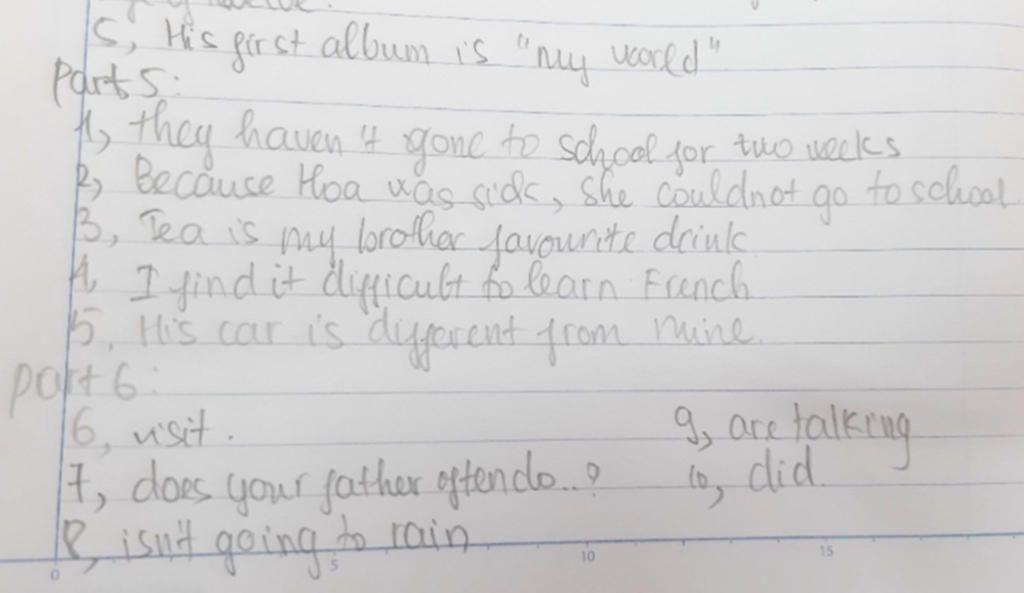 5, His first album is "my world"
Part 5:
1, they haven't gone to school for two weeks
2, Because Hoa was sick, she couldnot go to school
3, Tea is my brother favourite drink
4, I find it difficult to learn French
5, His car is different from mine.
part 6:
6, visit. 9, are talking
7, does your father often do..? 10, did
8, isn't going to rain
0 5 10 15